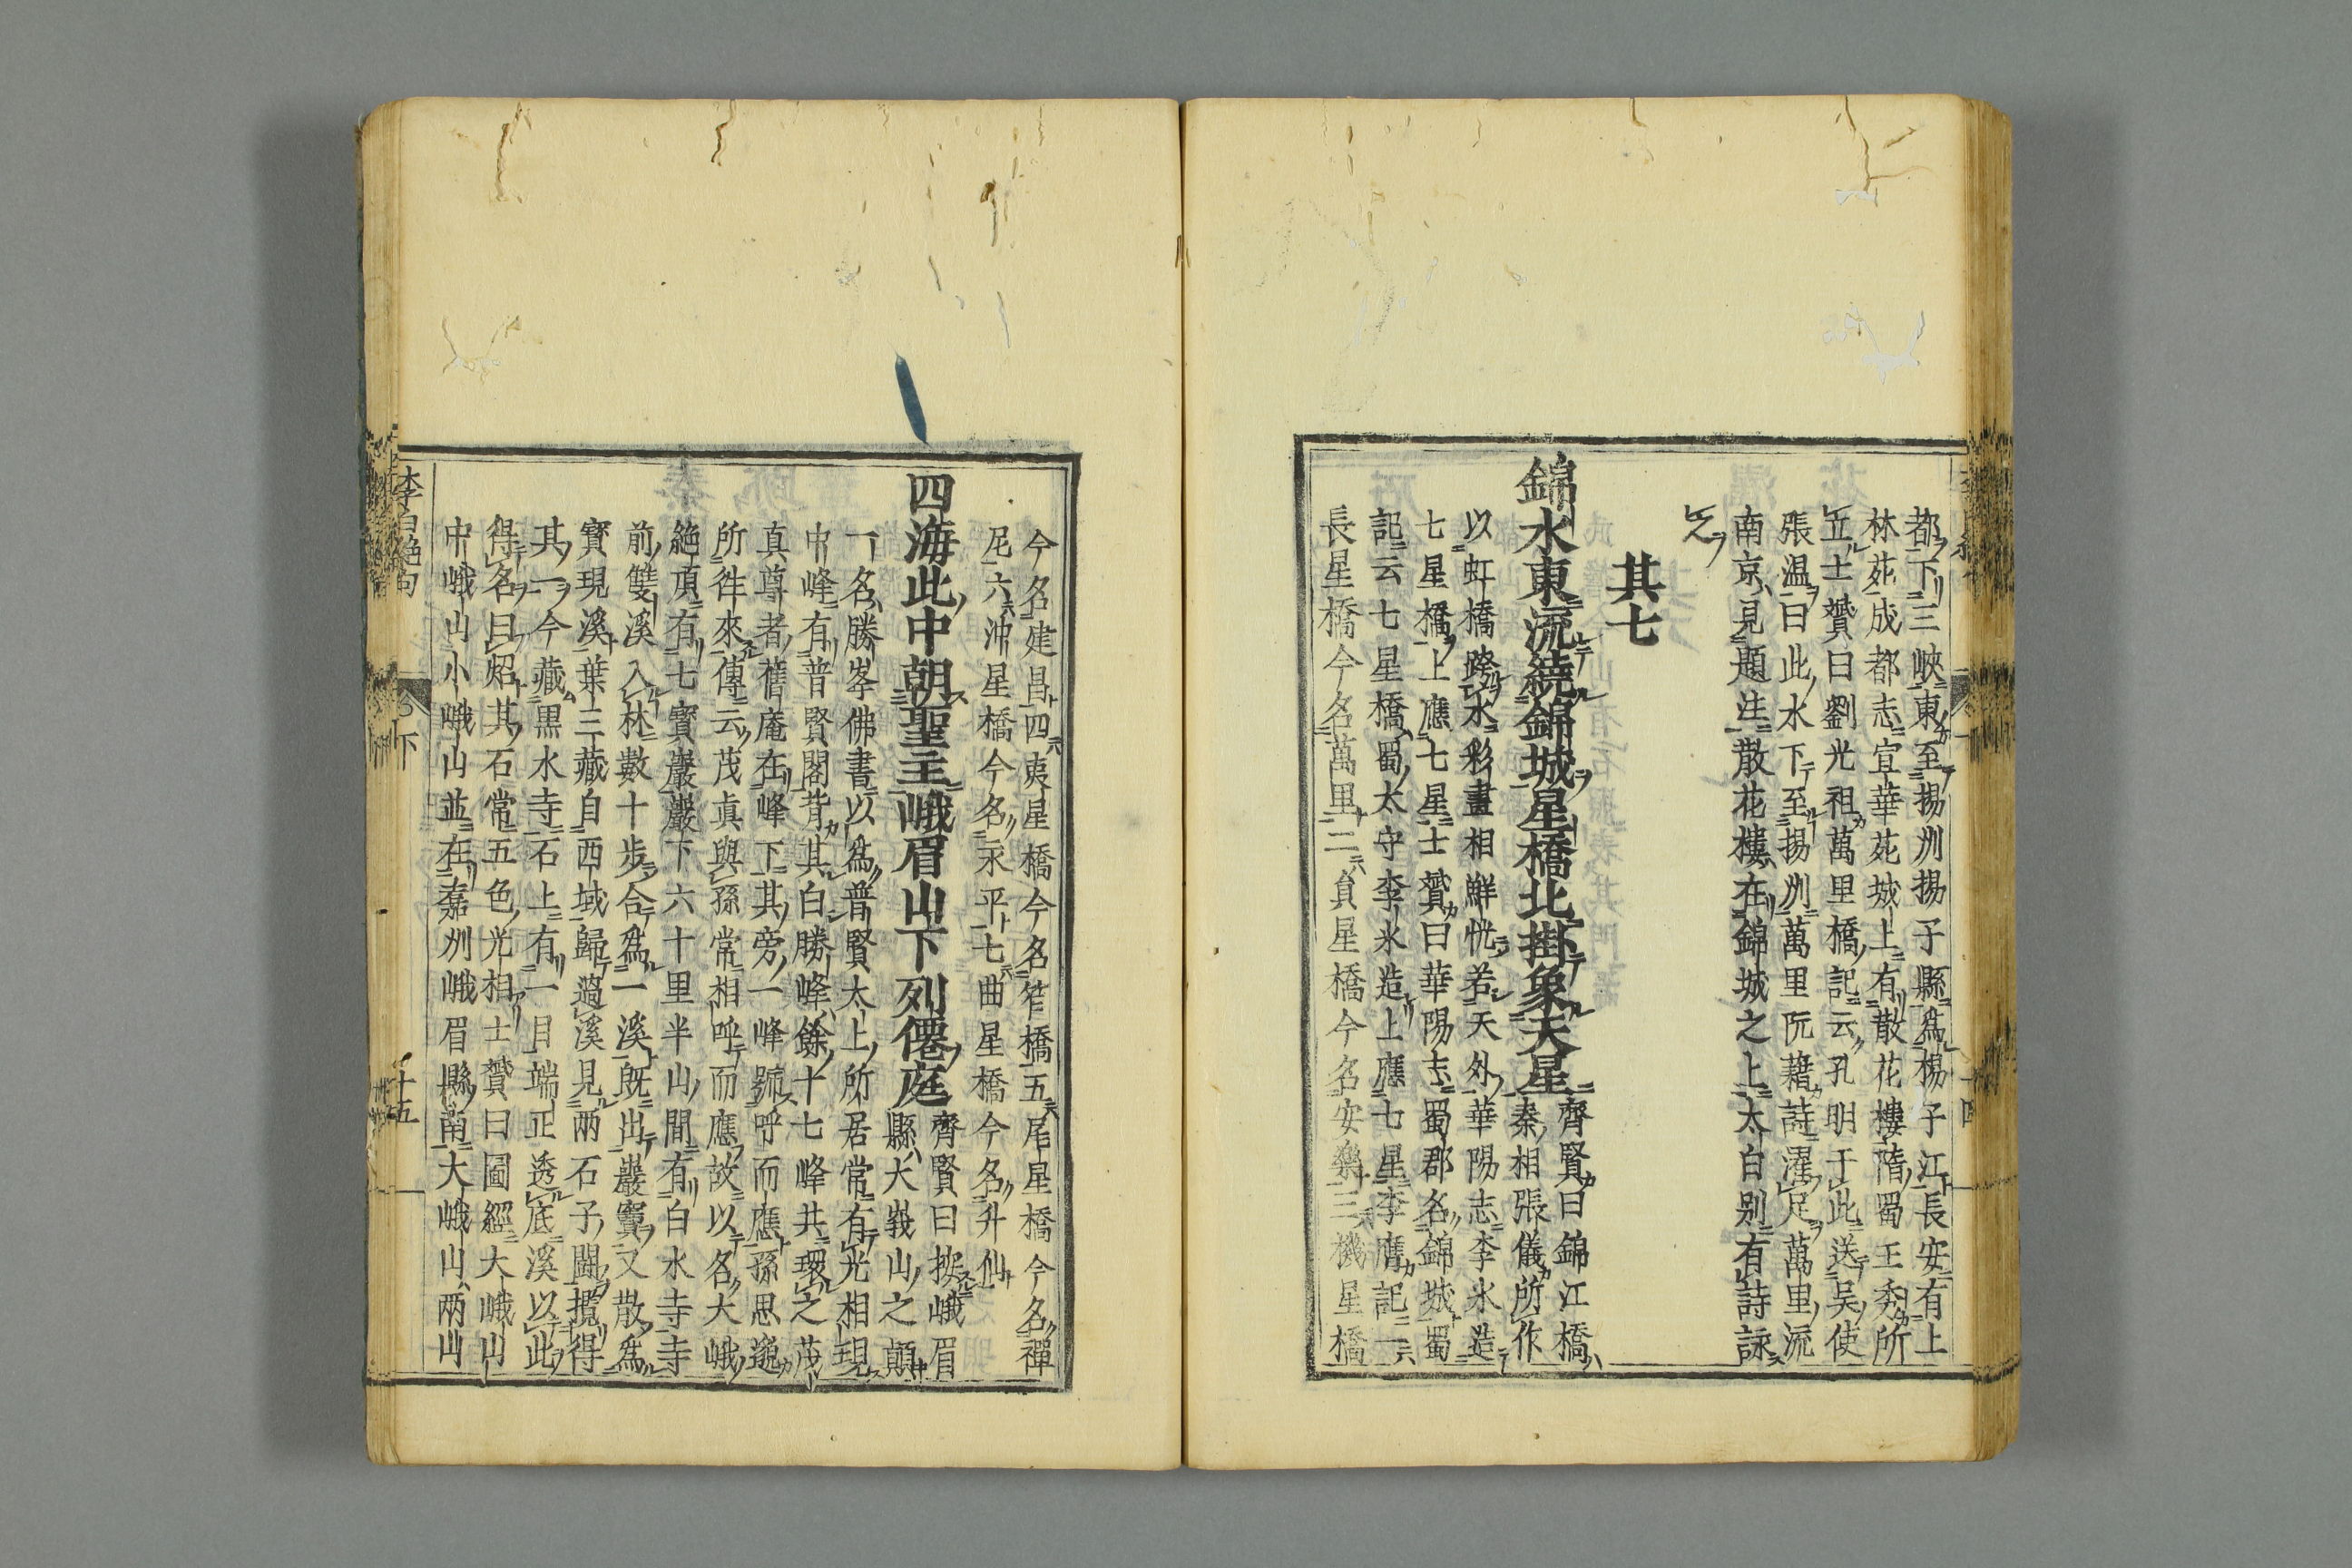 都下三峽東至揚州揚子縣爲楊子江長安有上
林苑成都志宣華苑城上有散花樓隋蜀王秀所
立士贇曰劉光祖萬里橋記云孔明于此送吴使
張温曰此水下至揚州萬里阮藉詩濯足萬里流
南京見題注散花樓在錦城之上太白别有詩詠
之
其七
錦水東流繞錦城星橋北掛象天星
齊賢曰錦江橋
秦相張儀所作
以虹橋跨水彩畫相鮮恍若天外華陽志李氷造
七星橋上應七星士贇曰華陽志蜀郡名錦城蜀
記云七星橋蜀太守李氷造上應七星李膺記一
長星橋今名萬里二負星橋今名安樂三機星橋
今名建昌四夷星橋今名笮橋五尾星橋今名禪
尼六冲星橋今名永平七曲星橋今名升仙
四海此中朝聖主峨眉山下列僊庭
齊賢曰按峨眉
縣大峩山之顛
一名勝峯佛書以爲普賢大士所居常有光相現
中峰有普賢閣背其白勝峰餘十七峰共環之茂
真尊者舊庵在峰下其旁一峰號呼而應孫思邈
所徃來傳云茂真與孫常相呼而應故以名大峨
絶頂有七寳巖巖下六十里半山間有白水寺寺
前雙溪入林數十步合爲一溪既出巖竇又散爲
寳現溪葉三藏自西域歸過溪見兩石子鬪攬得
其一今藏黒水寺石上有一目端正透底溪以此
得名曰炤其石常五色光相士贇曰圖經大峨山
中峨山小峨山並在嘉州峨眉縣南大峨山兩山
李白絶句
下
十五